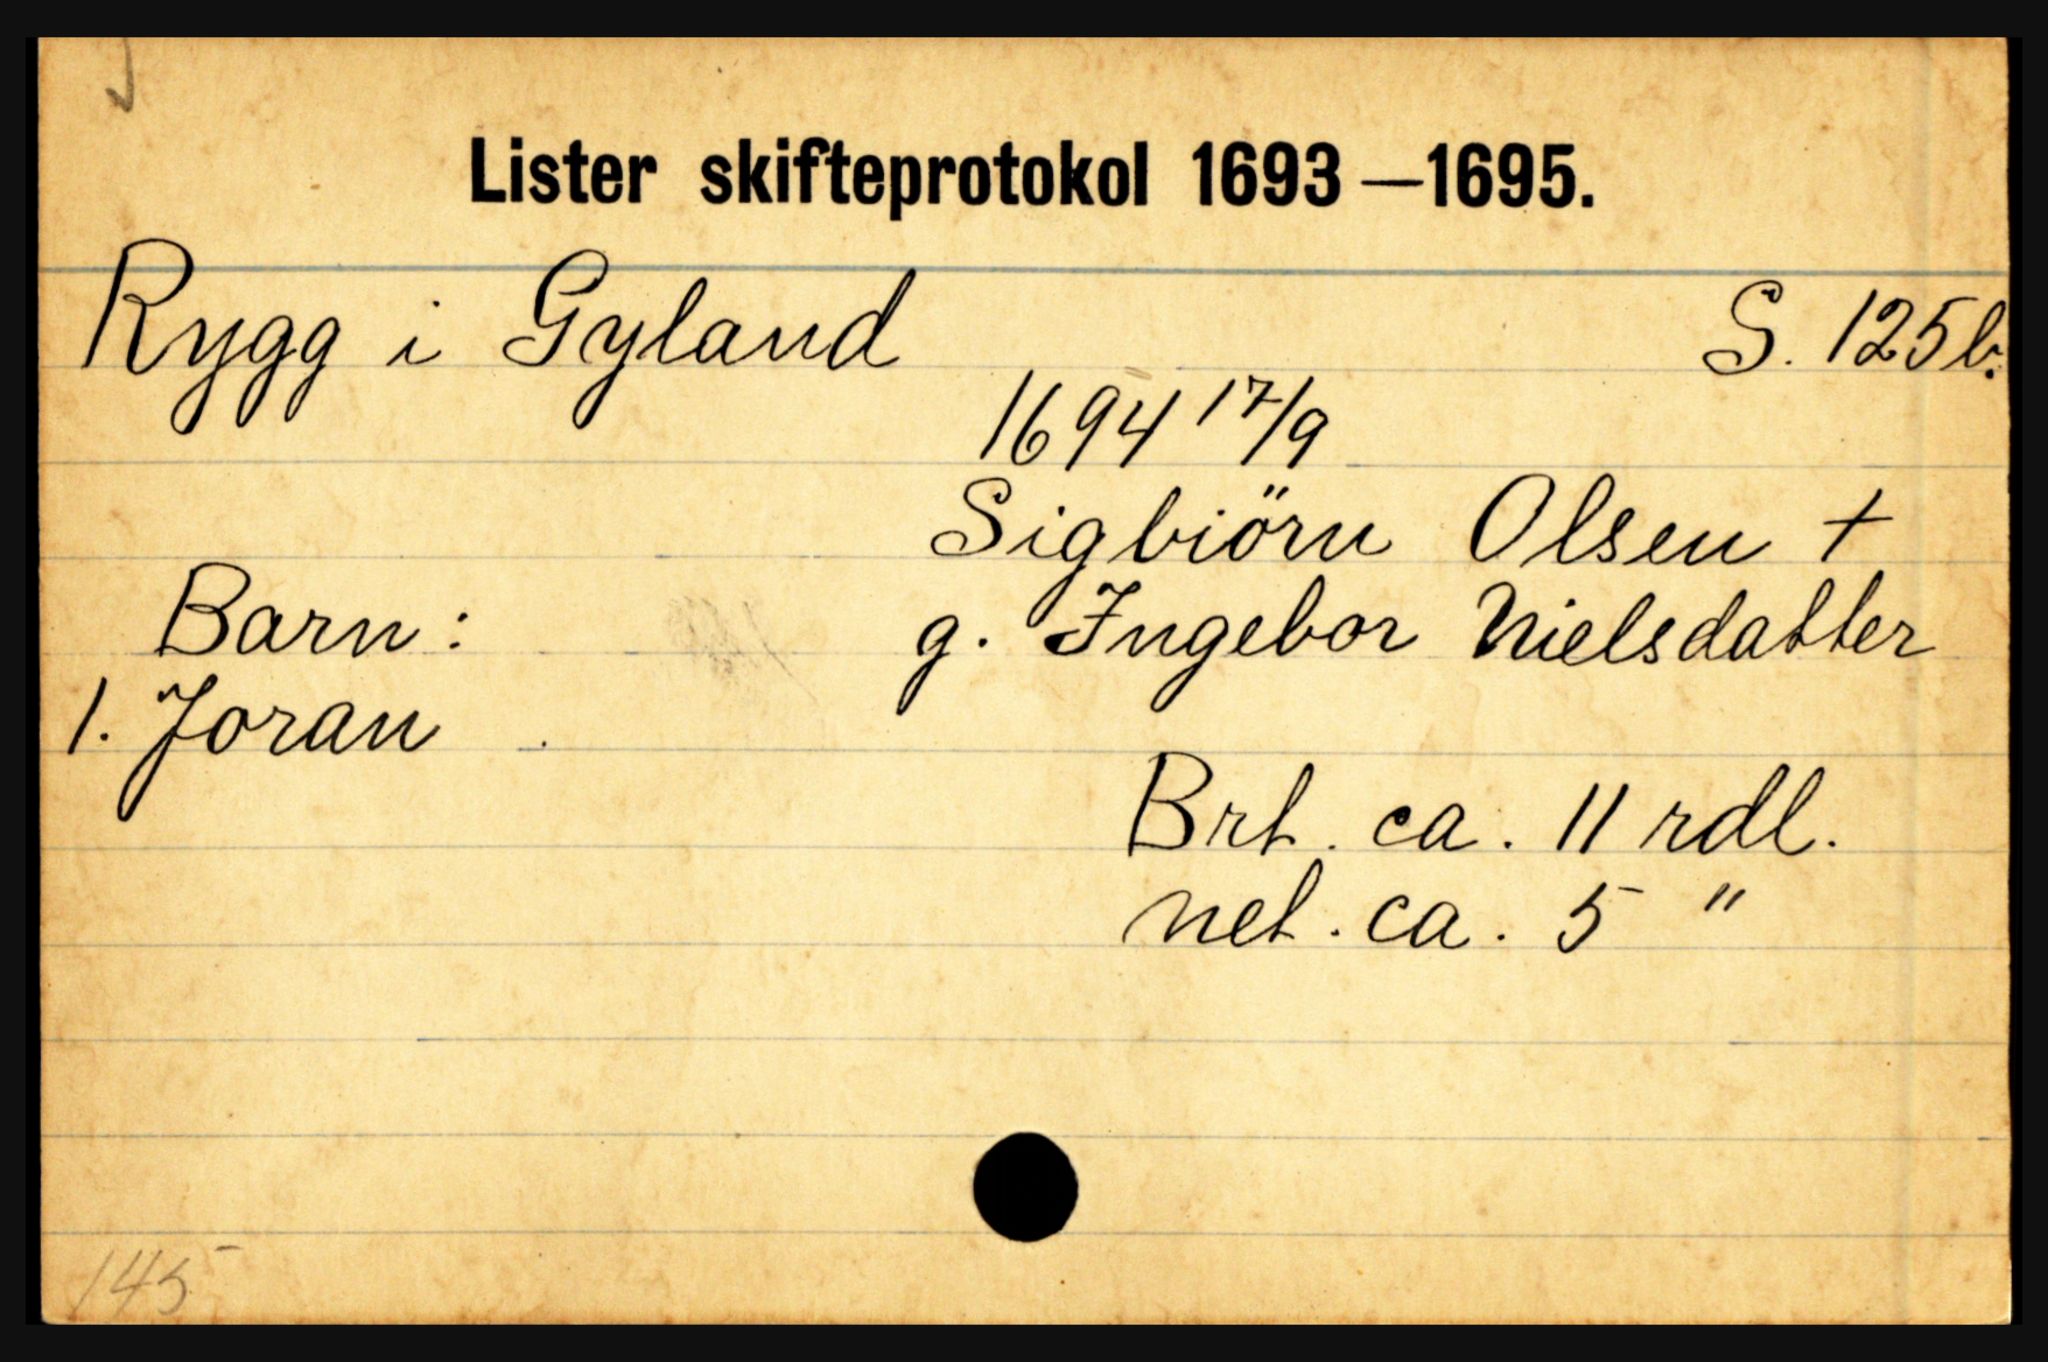 Lister skifteprotokol 1693—1695.
Rygg i Gyland S. 125b.
1694 17/9
Sigbiörn Olsen +
g. Ingebor Nielsdatter
Barn:
1. Joran
Brt. ca. 11 rdl.
net. ca. 5 "
145